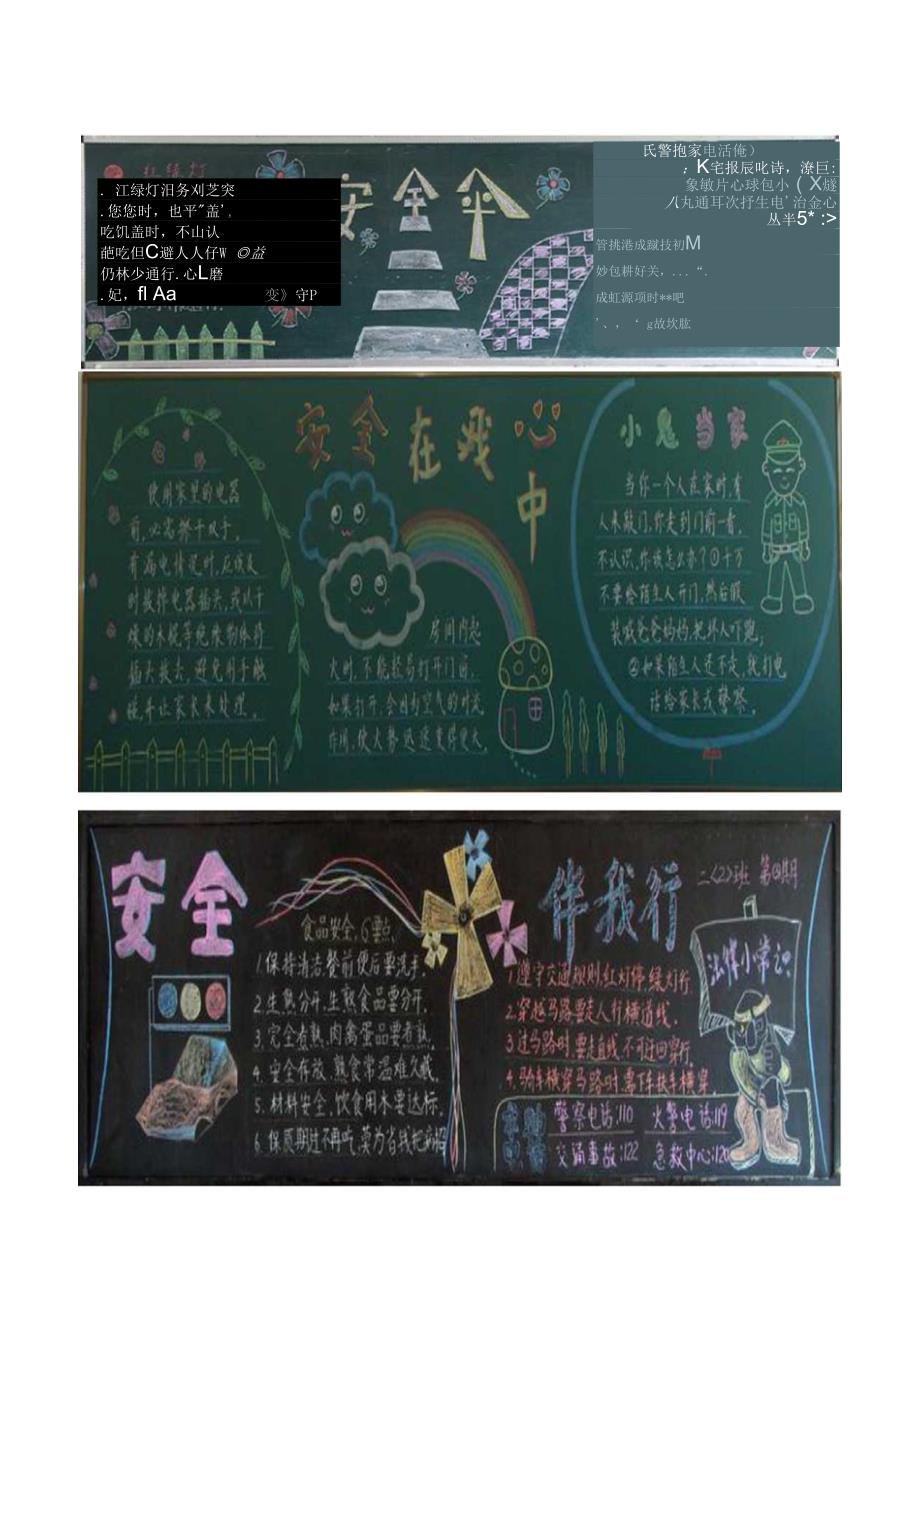 红绿灯
安全
. 江绿灯汨务刈芝突
.您您时，也平"盖',
吃饥盖时，不山认
葩吃但C避人人仔W ◎益
仍林少通行.心L磨
.妃，fl Aa 变》守P
氏警抱家电活俺）
；K宅报辰叱诗，潦巨:
象敏片心球包小 ( X燧
八丸通耳次抒生电'治金心
丛半5* :>
管挑港成蹴技初M
妙包耕好关，...“.
成虹源项时**吧
'、，‘ g故坎肱
安全在我心中
使用家里的电器
前，必需擦干双手，
有漏电情况时，应该及
时拔掉电器插头，或以干
燥的木棍等绝缘物体将
插头拔去，避免用手触
碰并让家长来处理。
房间内起
火时，不能轻易打开门窗，
如果打开，会因为空气的对流
作用，使火势迅速变得更大。
小鬼当家
当你一个人在家时，有
人来敲门，你走到门前一看，
不认识，你该怎么办？①千万
不要给陌生人开门，然后假
装喊爸爸妈妈，把坏人吓跑；
②如果陌生人还不走，就打电
话给家长或警察。
安全
伴我行
二〈2〉班 第四期
食品安全，6要点、
1.保持清洁，餐前便后要洗手。
2.生熟分开，生熟食品要分开。
3.完全煮熟，肉禽蛋品要煮熟。
4.安全存放，熟食常温难久藏。
5.材料安全，饮食用水要达标。
6.保质期过不再吃，莫为省钱把病招
1.遵守交通规则，红灯停，绿灯行
2.穿越马路要走人行横道线。
3.过马路时，要走直线，不可迂回穿行。
4.骑车横穿马路时，需下车扶车横穿。
警察电话:110 火警电话:119
交通事故:122 急救中心:120
法律小常识